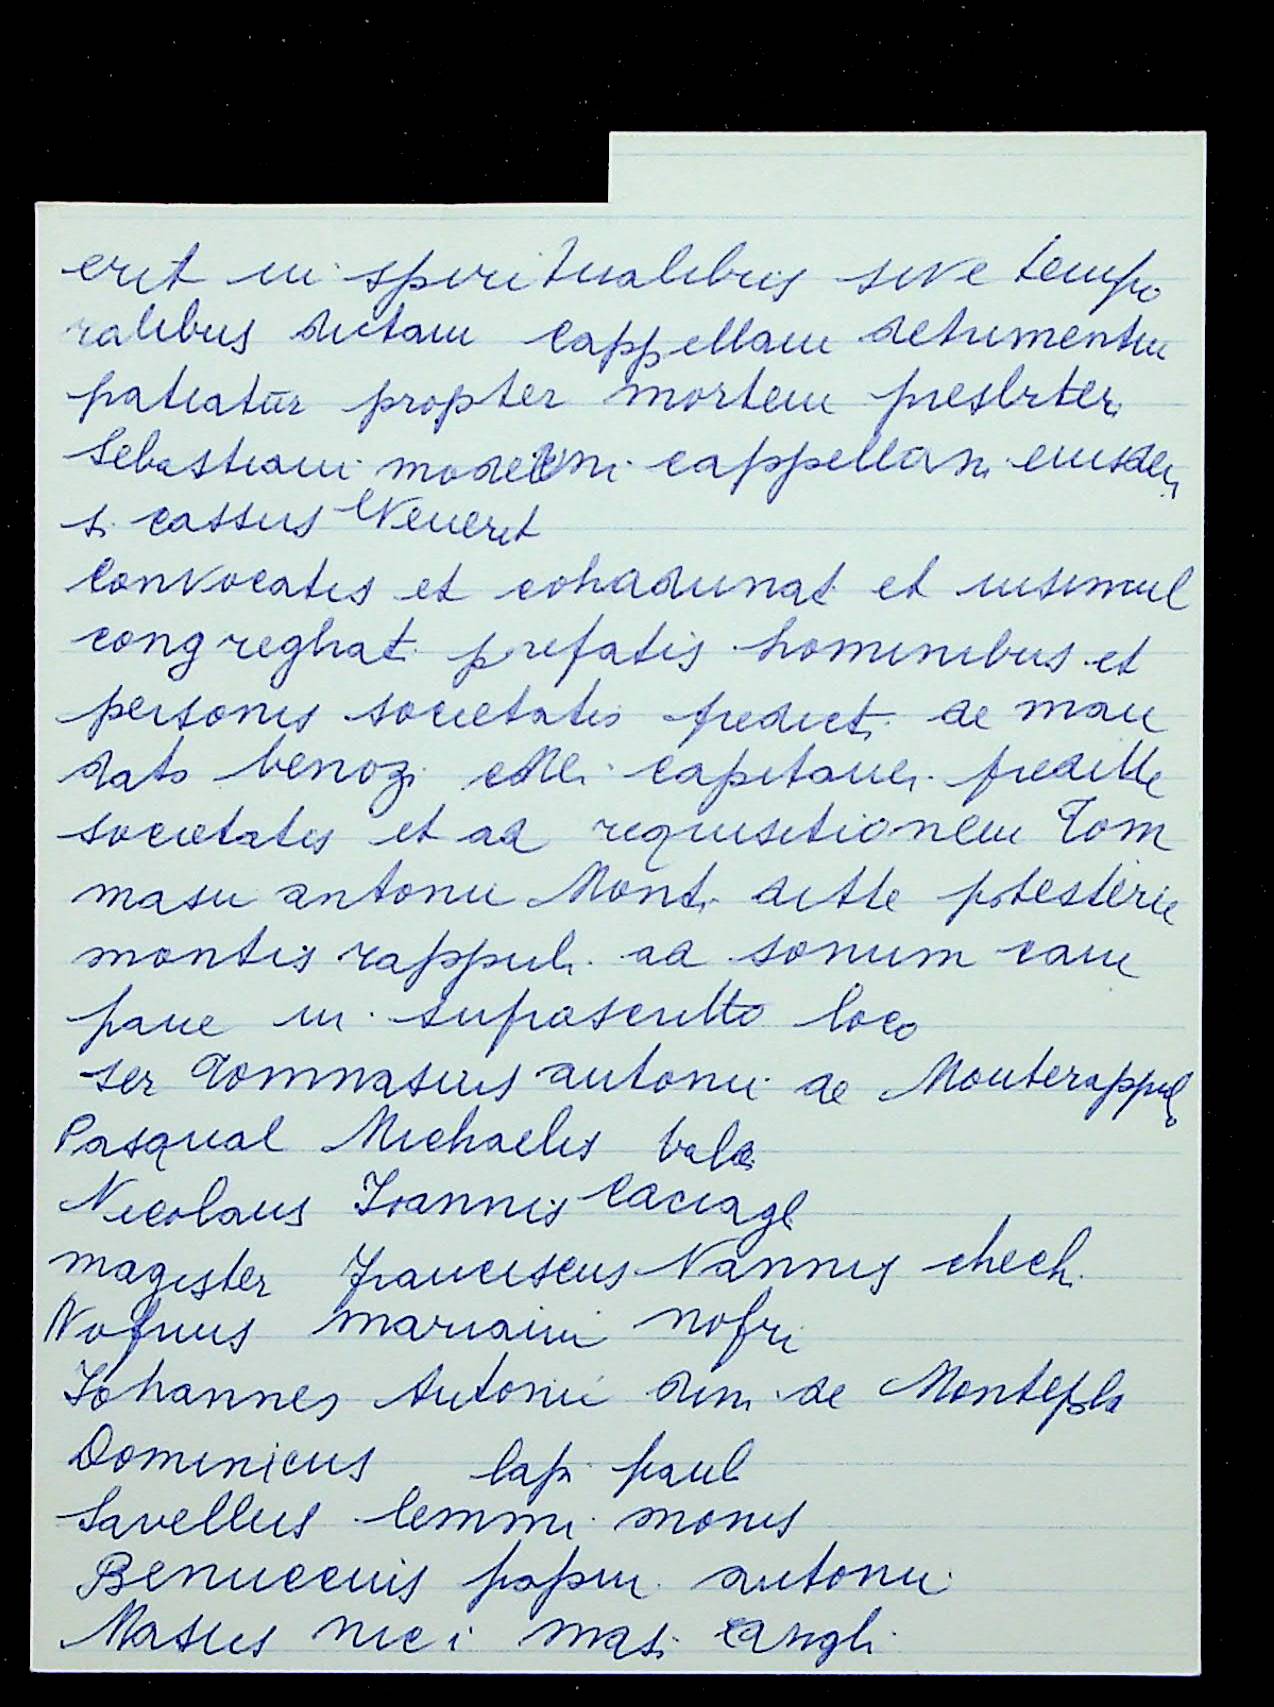 erit in spiritualibus sive tempo
ralibus dictam cappellam detrimentu
patiatur propter mortem presbiteri
Sebastiani moderni cappellani eiusdem
si cassus Veuerit
Convocatis et cohadunat et insimul
congreghat prefatis hominibus et
personis societatis predict de man
dato benozi capitanei preditte
societatis et ad requisitionem Tom
masii antonii Mont. ditte potesterie
montis rappuli ad sonum cam
pane in suprascritto loco
ser Tommasius antonii de Monterappuli
Pasqual Michaelis
Nicolaus Ioannis Caciagl
magister Franciscus Nannis chech.
Nofrius mariani nofri
Johannes Antonii de
Dominicus lapi pauli
Savellus lemmi monis
Benuccius papini antonii
Masus nici masi